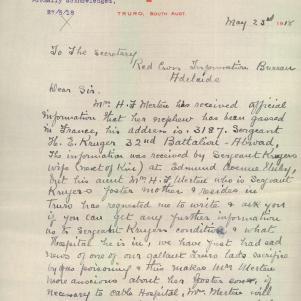 Actually acknowledged,
27/5/18
TRURO, SOUTH AUST.
May 23rd 1918
To The Secretary
Red Cross Information Bureau
Adelaide
Dear Sir.
Mrs H. F Mertin has received official
information that her nephew has been gassed
in France, his address is. 3187. Sergeant
E. Kruger 32nd Battalion - Abroad,
The information was received by Sergeant Krugers
wife (next of kin) at Edmund Avenue Unley,
but his aunt Mrs H. F Mertin who is Sergeant
Krugers foster mother & resides in
Truro has requested me to write & ask you
if you can get any further information
as to Sergeant Krugers condition & what
Hospital he is in, we have just had sad
news of one of our gallant Truro lads sacrifice
by gas poisoning & this makes Mrs Mertin
more anxious about her foster son, if
necessary to cable Hospital, Mrs Mertin will